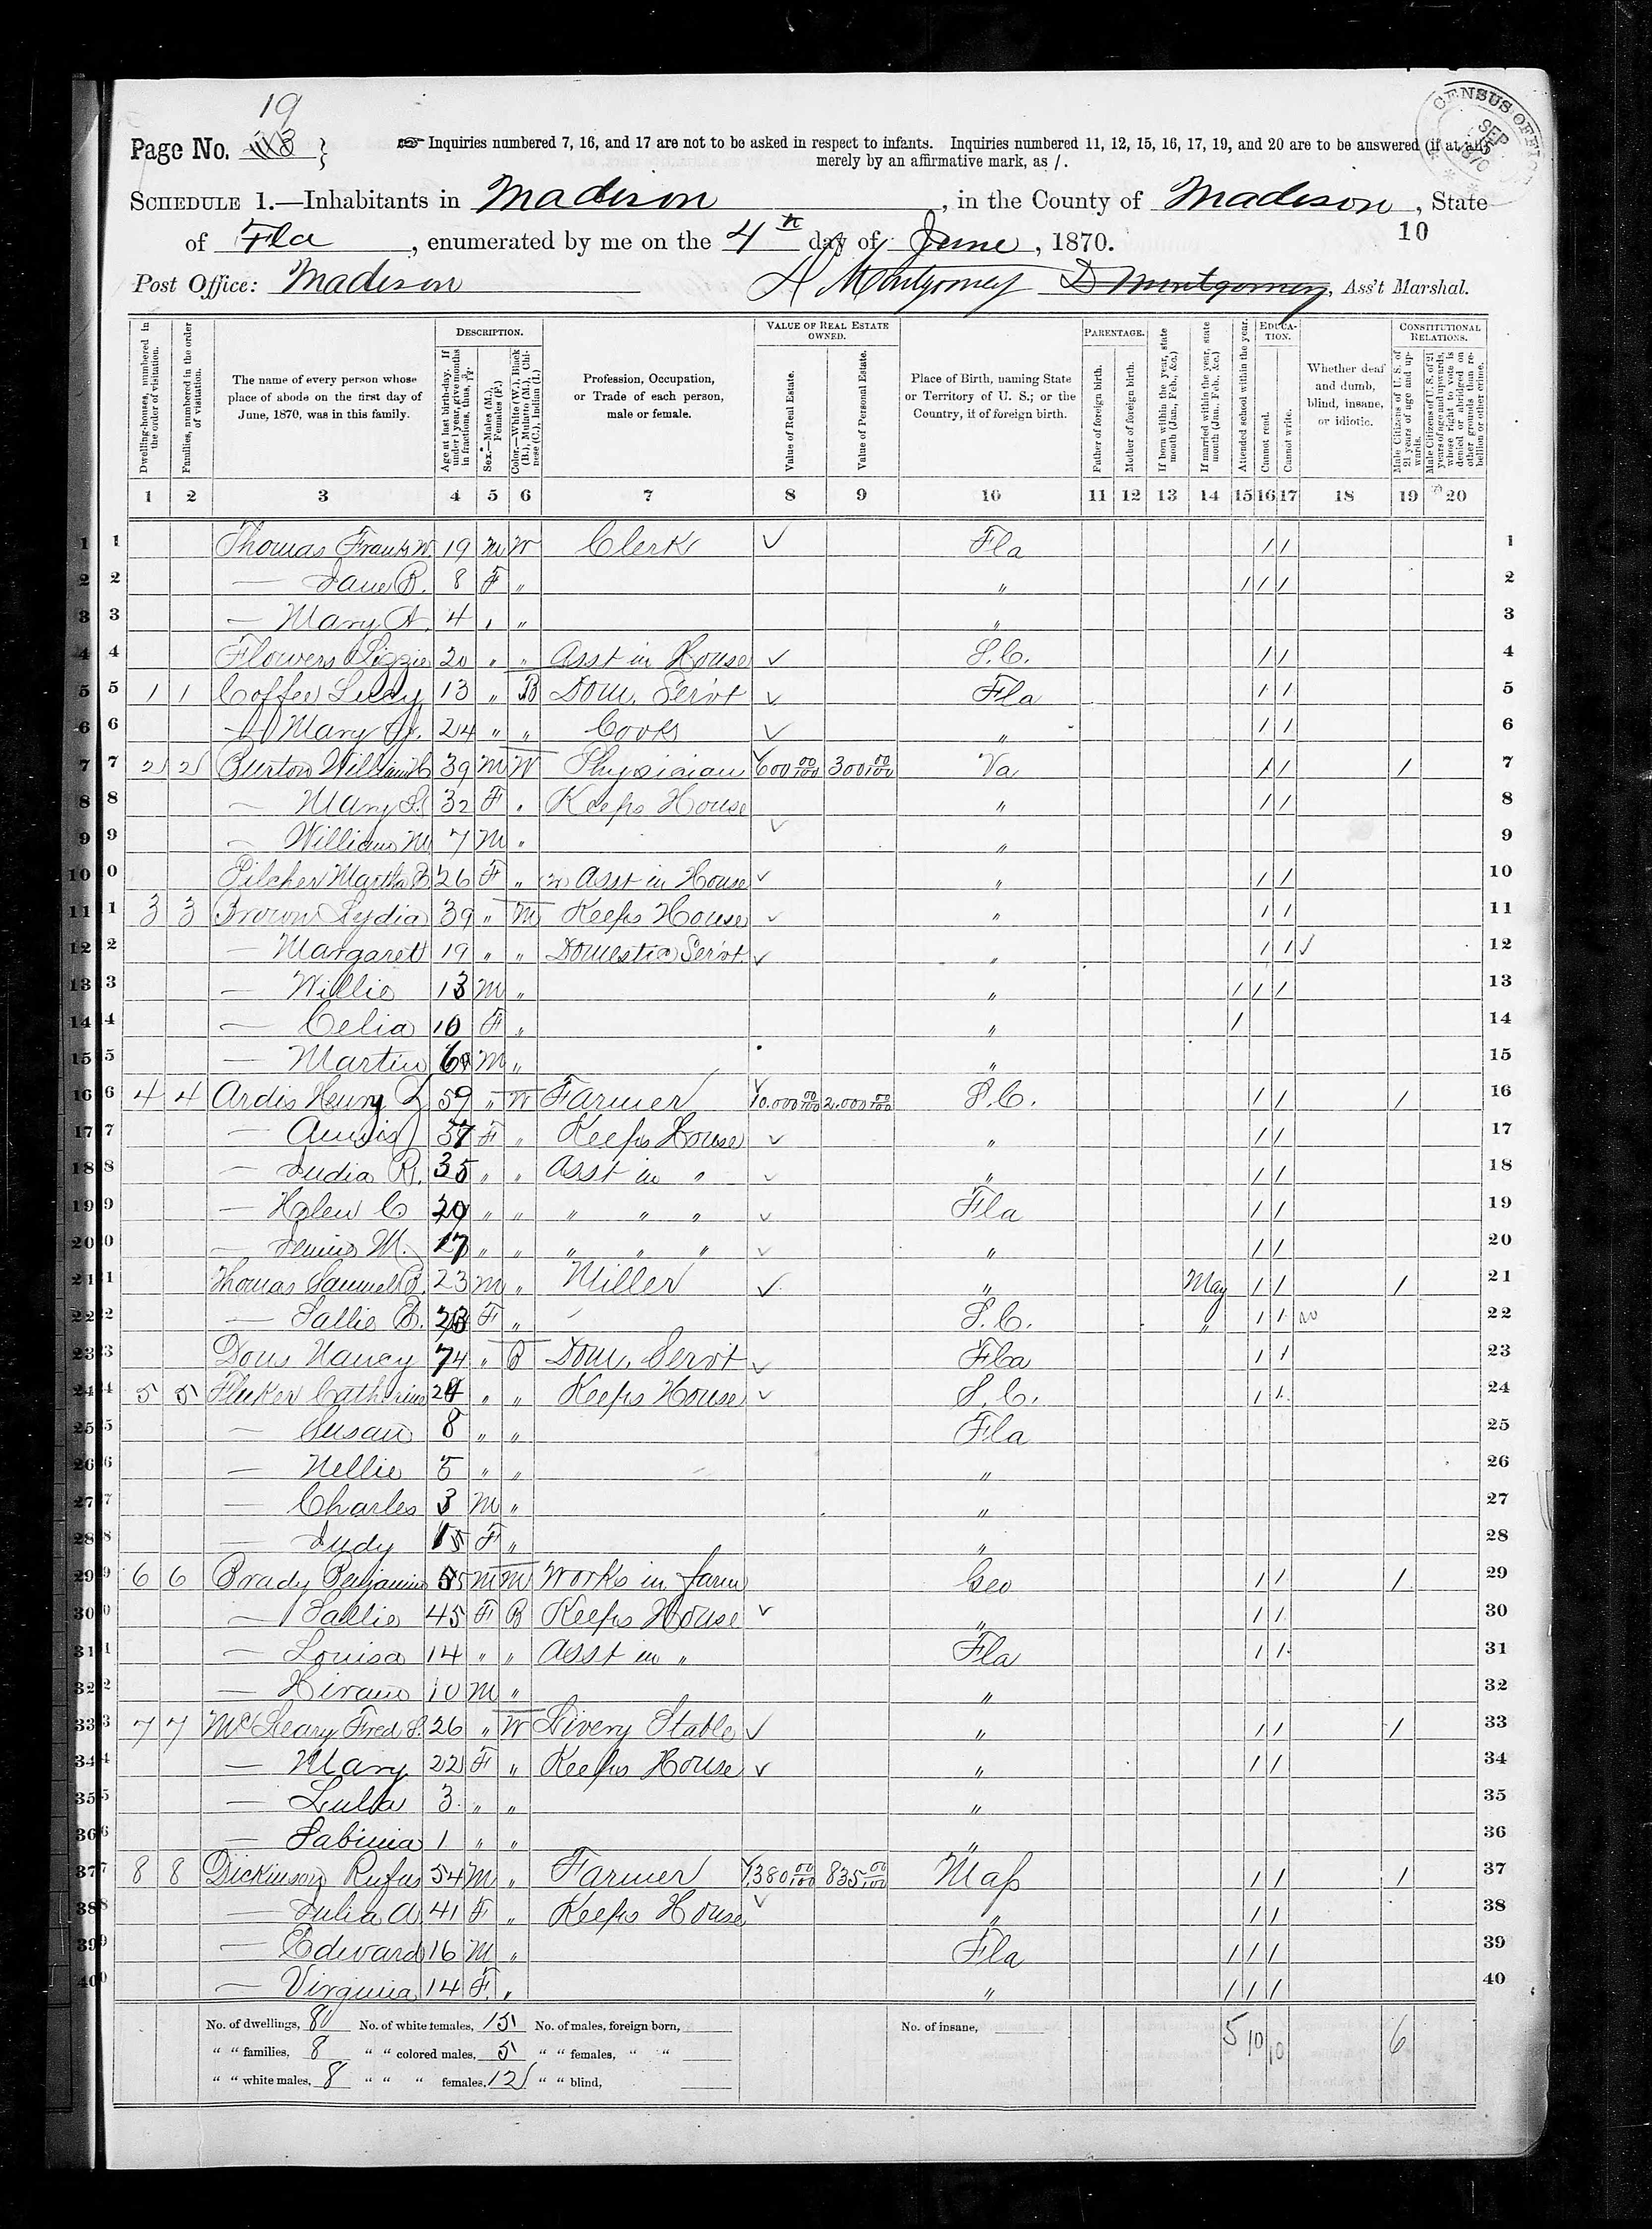 19
Page No. 113
Inquiries numbered 7, 16, and 17 are not to be asked in respect to infants. Inquiries numbered 11, 12, 15, 16, 17, 19, and 20 are to be answered (if at all)
merely by an affirmative mark, as /.
CENSUS OFFICE SEP 1870
SCHEDULE 1.—Inhabitants in Madison, in the County of Madison, State
of Fla, enumerated by me on the 4th day of June, 1870.
10
Post Office: Madison D Montgomery D Montgomery, Ass't Marshal.
Dwelling-houses, numbered in the order of visitation.
Families, numbered in the order of visitation.
The name of every person whose place of abode on the first day of June, 1870, was in this family.
DESCRIPTION.
Age at last birth-day. If under 1 year, give months in fractions, thus, 3/12.
Sex.—Males (M.), Females (F.)
Color.—White (W.), Black (B.), Mulatto (M.), Chinese (C.), Indian (I.)
Profession, Occupation, or Trade of each person, male or female.
VALUE OF REAL ESTATE OWNED.
Value of Real Estate.
Value of Personal Estate.
Place of Birth, naming State or Territory of U. S.; or the Country, if of foreign birth.
PARENTAGE.
Father of foreign birth.
Mother of foreign birth.
If born within the year, state month (Jan., Feb., &c.)
If married within the year, state month (Jan., Feb., &c.)
Attended school within the year.
EDUCATION.
Cannot read.
Cannot write.
Whether deaf and dumb, blind, insane, or idiotic.
CONSTITUTIONAL RELATIONS.
Male Citizens of U. S. of 21 years of age and upwards.
Male Citizens of U. S. of 21 years of age and upwards, whose right to vote is denied or abridged on other grounds than rebellion or other crime.
1 2 3 4 5 6 7 8 9 10 11 12 13 14 15 16 17 18 19 20
1 Thomas Frank W 19 M W Clerk ✓ Fla / / 1
2 — Jane B. 8 F " " / / / 2
3 — Mary A. 4 " " " 3
4 Flowers Lizzie 20 " " Asst in House ✓ S.C. / / 4
5 1 1 Coffee Lucy 13 " B Dom. Serv't ✓ Fla / / 5
6 — Mary 24 " " Cook ✓ " / / 6
7 2 2 Burton William H 39 M W Physician 600 00/100 300 00/100 Va / / / 7
8 — Mary S. 32 F " Keeps House " / / 8
9 — William M 7 M " ✓ " 9
10 Pilcher Martha B 26 F " Asst in House ✓ " / / 10
11 3 3 Brown Lydia 39 " M Keeps House ✓ " / / 11
12 — Margarett 19 " " Domestic Serv't ✓ " / / ✓ 12
13 — Willie 13 M " " / / / 13
14 — Celia 10 F " " / 14
15 — Martin 6 M " " 15
16 4 4 Ardis Henry Z 59 " W Farmer 10.000 00/100 2.000 00/100 S.C. / / / 16
17 — 57 F " Keeps House ✓ " / / 17
18 — Judia R. 35 " " Asst in " ✓ " / / 18
19 — Helen C 20 " " " " " ✓ Fla / / 19
20 — M. 17 " " " " " ✓ " / / 20
21 Thomas Samuel B. 23 M " Miller ✓ " May / / / 21
22 — Sallie E. 23 F " S.C. " / / 22
23 Nancy 74 " B Dom. Serv't ✓ Fla / / 23
24 5 5 Fluker Catharine 24 " " Keeps House ✓ S.C. / / 24
25 — Susan 8 " " Fla 25
26 — Nellie 5 " " " 26
27 — Charles 3 M " " 27
28 — Judy 15 F " " 28
29 6 6 Brady Benjamin 55 M M Works in farm Geo / / / 29
30 — Sallie 45 F B Keeps House ✓ " / / 30
31 — Louisa 14 " " Asst in " Fla / / 31
32 — Hiram 10 M " " 32
33 7 7 McLeary Fred S. 26 " W Livery Stable ✓ " / / / 33
34 — Mary 22 F " Keeps House ✓ " / / 34
35 — Lula 3 " " " 35
36 — Sabinia 1 " " " 36
37 8 8 Dickinson Rufus 54 M " Farmer 1,380 00/100 835 00/100 Mass / / / 37
38 — Julia A. 41 F " Keeps House ✓ " / / 38
39 — Edward 16 M " Fla / / / 39
40 — Virginia 14 F. " " / / / 40
No. of dwellings, 8 No. of white females, 15 No. of males, foreign born, No. of insane, 5 10 10 6
" " families, 8 " " colored males, 5 " " females, " "
" " white males, 8 " " " females, 12 " " blind,